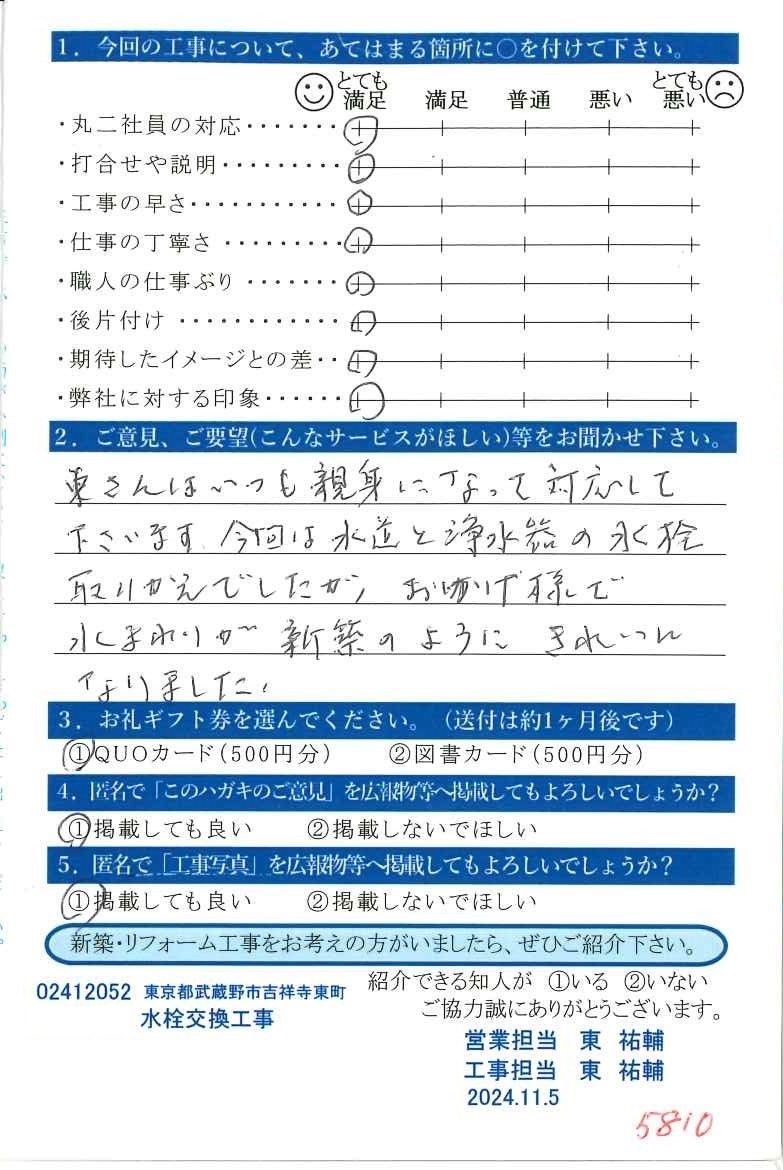 1．今回の工事について、あてはまる箇所に○を付けて下さい。
とても満足 満足 普通 悪い とても悪い
・丸二社員の対応・・・・・・・
・打合せや説明・・・・・・・・・
・工事の早さ・・・・・・・・・・・
・仕事の丁寧さ・・・・・・・・・
・職人の仕事ぶり・・・・・・・
・後片付け・・・・・・・・・・・・
・期待したイメージとの差・・
・弊社に対する印象・・・・・・
2．ご意見、ご要望(こんなサービスがほしい)等をお聞かせ下さい。
東さんはいつも親身になって対応して
下さいます。今回は水道と浄水器の水栓
取りかえでしたが、お陰げ様で
水まわりが新築のように きれいに
なりました。
3．お礼ギフト券を選んでください。（送付は約1ヶ月後です）
①QUOカード(500円分) ②図書カード(500円分)
4．匿名で「このハガキのご意見」を広報物等へ掲載してもよろしいでしょうか？
①掲載しても良い ②掲載しないでほしい
5．匿名で「工事写真」を広報物等へ掲載してもよろしいでしょうか？
①掲載しても良い ②掲載しないでほしい
新築・リフォーム工事をお考えの方がいましたら、ぜひご紹介下さい。
紹介できる知人が ①いる ②いない
02412052 東京都武蔵野市吉祥寺東町
ご協力誠にありがとうございます。
水栓交換工事
営業担当 東 祐輔
工事担当 東 祐輔
2024.11.5
5810